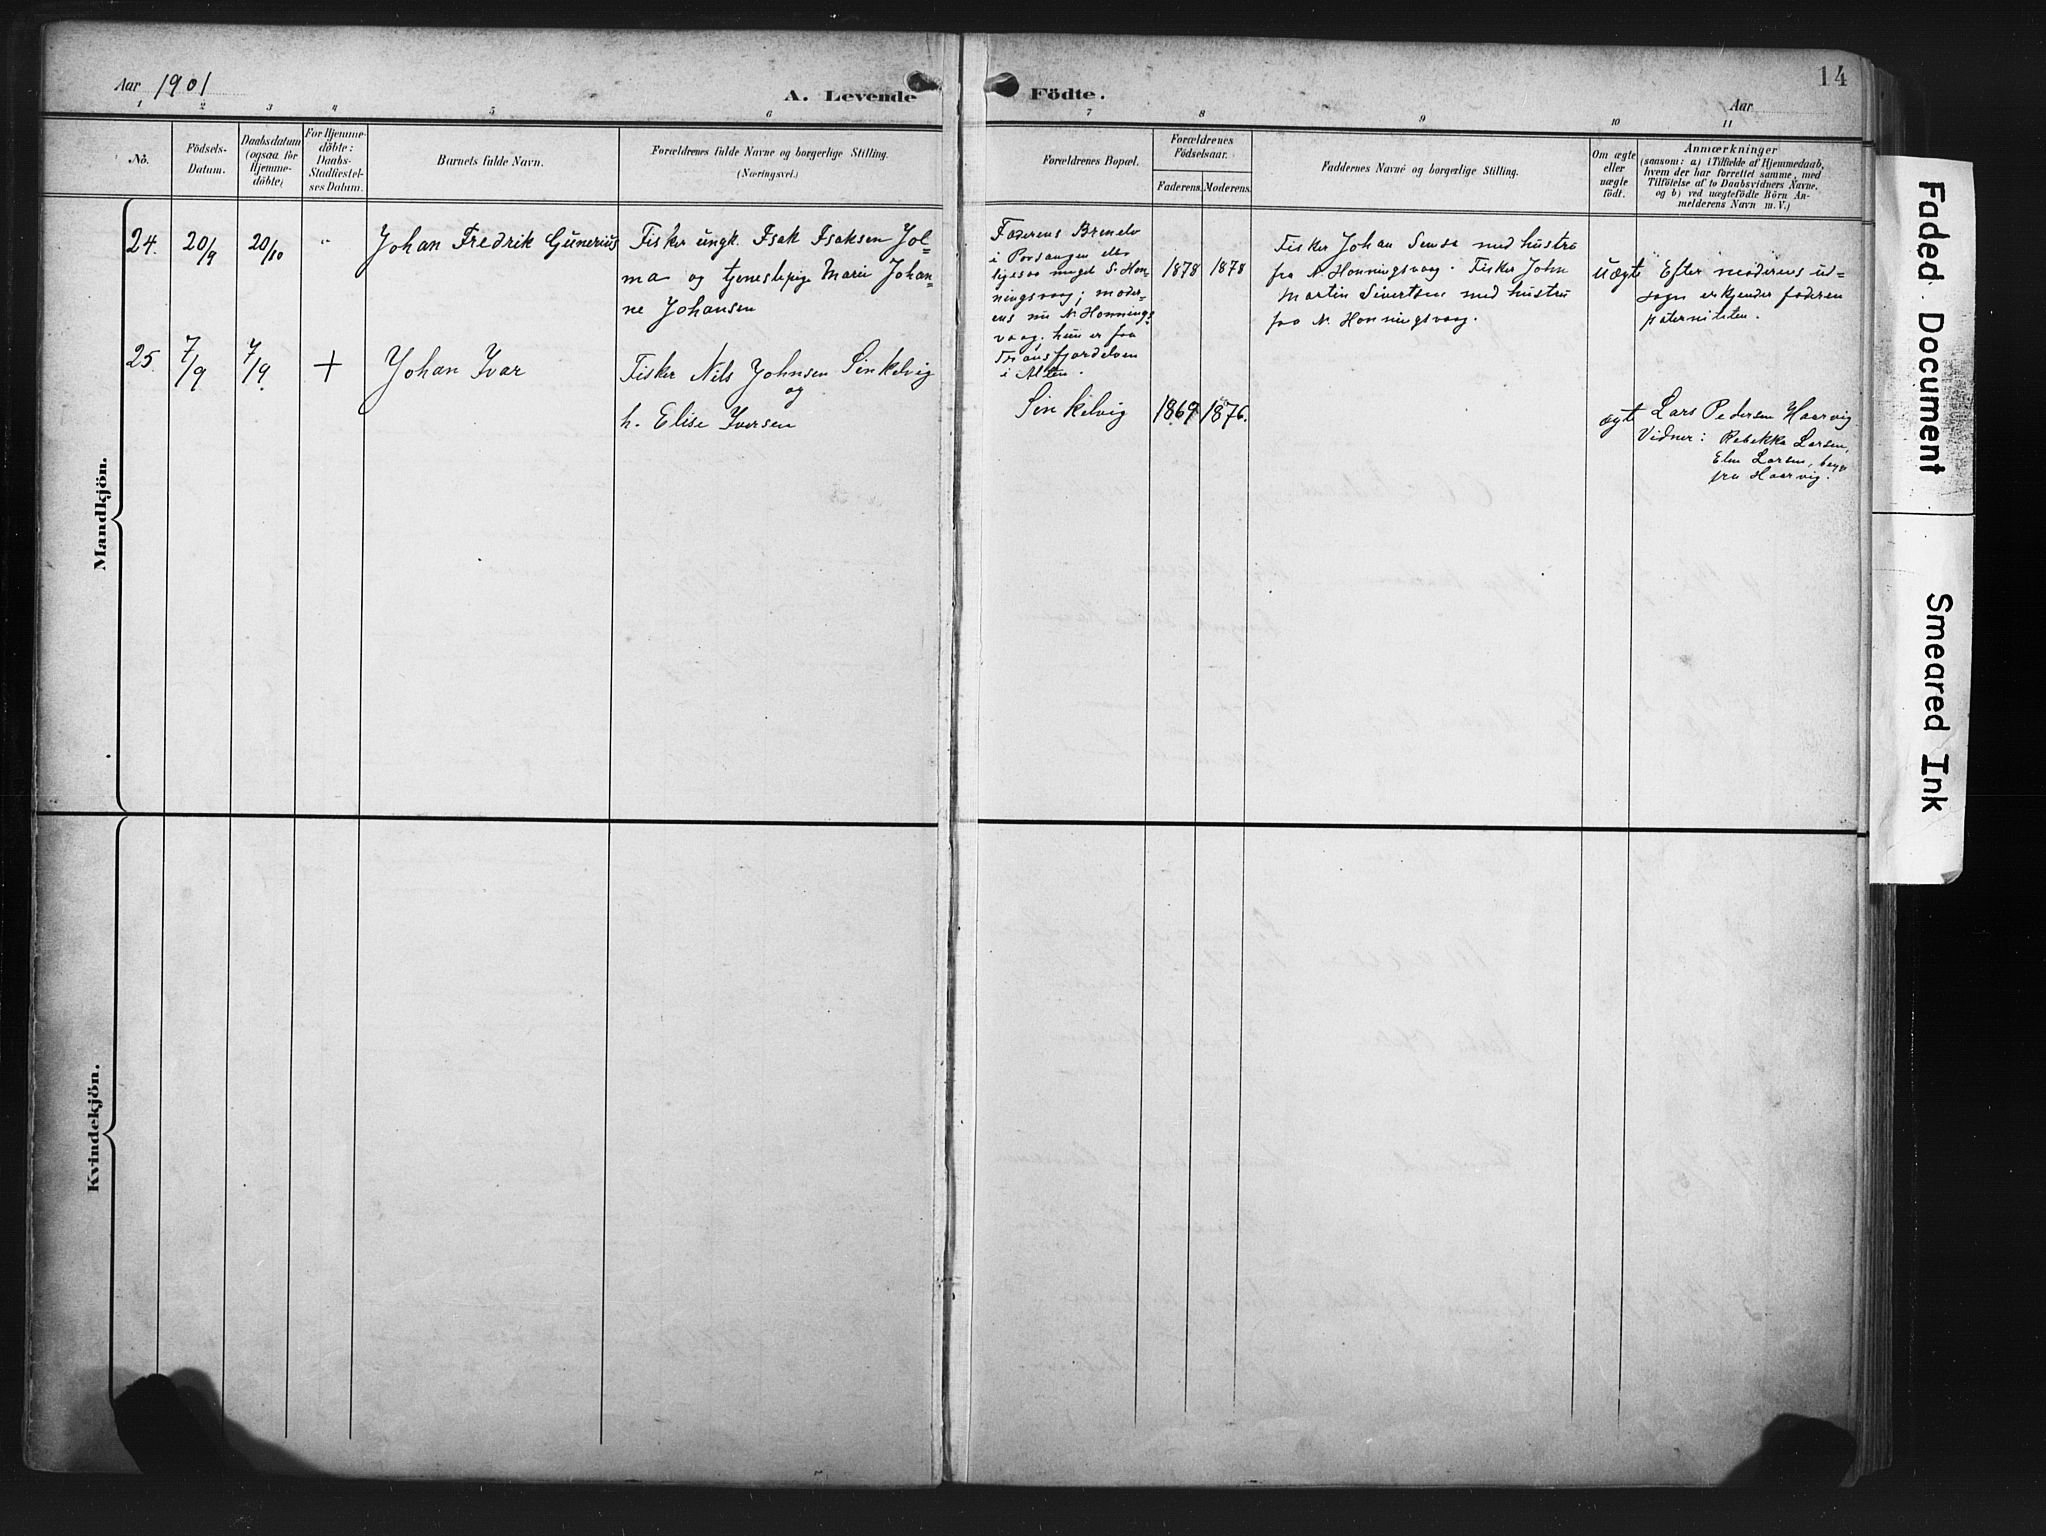 Aar 1901
A. Levende Födte.
Aar
14
1 2 3 4 5 6 7 8 9 10 11
No.
Födsels-
Datum.
Daabsdatum
(ogsaa for
Hjemme-
döbte)
For Hjemme-
döbte:
Daabs-
Stadfæstel-
ses Datum.
Barnets fulde Navn.
Forældrenes fulde Navne og borgerlige Stilling.
(Næringsvei.)
Forældrenes Bopæl.
Forældrenes
Födselsaar.
Faderens.
Moderens.
Faddernes Navne og borgerlige Stilling.
Om ægte
eller
uægte
födt.
Anmærkninger
(saasom: a) i Tilfælde af Hjemmedaab,
hvem der har forrettet samme, med
Tilföielse af to Daabsvidners Navne,
og b) ved uægtefödte Börn An-
melderens Navn m. V.)
Mandkjön.
24.
20/9
20/10
"
Johan Fredrik Gunerius
Fisker ungk. Isak Isaksen Jol-
ma og tjenestepige Marie Johan-
ne Johansen
Faderens Brenelv
i Porsangen eller
ligesaa meget S. Hon-
ningsvaag; moder-
ens nu N. Honnings-
vaag, hun er fra
i Alten.
1878
1878
Fisker Johan med hustru
fra N. Honningsvaag. Fisker John
Martin Sivertsen med hustru
fra N. Honningsvaag.
uægte
Efter moderens ud-
sagn erkjender faderen
paterniteten.
25.
7/9
7/9.
+
Johan Ivar
Fisker Nils Johnsen Sinkelvig
og
h. Elise Iversen
Sinkelvig
1869
1876.
ægte
Lars Pedersen Haarvig
Vidner: Rebekka Larsen,
Elen Larsen, begge
fra Haarvig.
Kvindekjön.
Faded Document
Smeared Ink